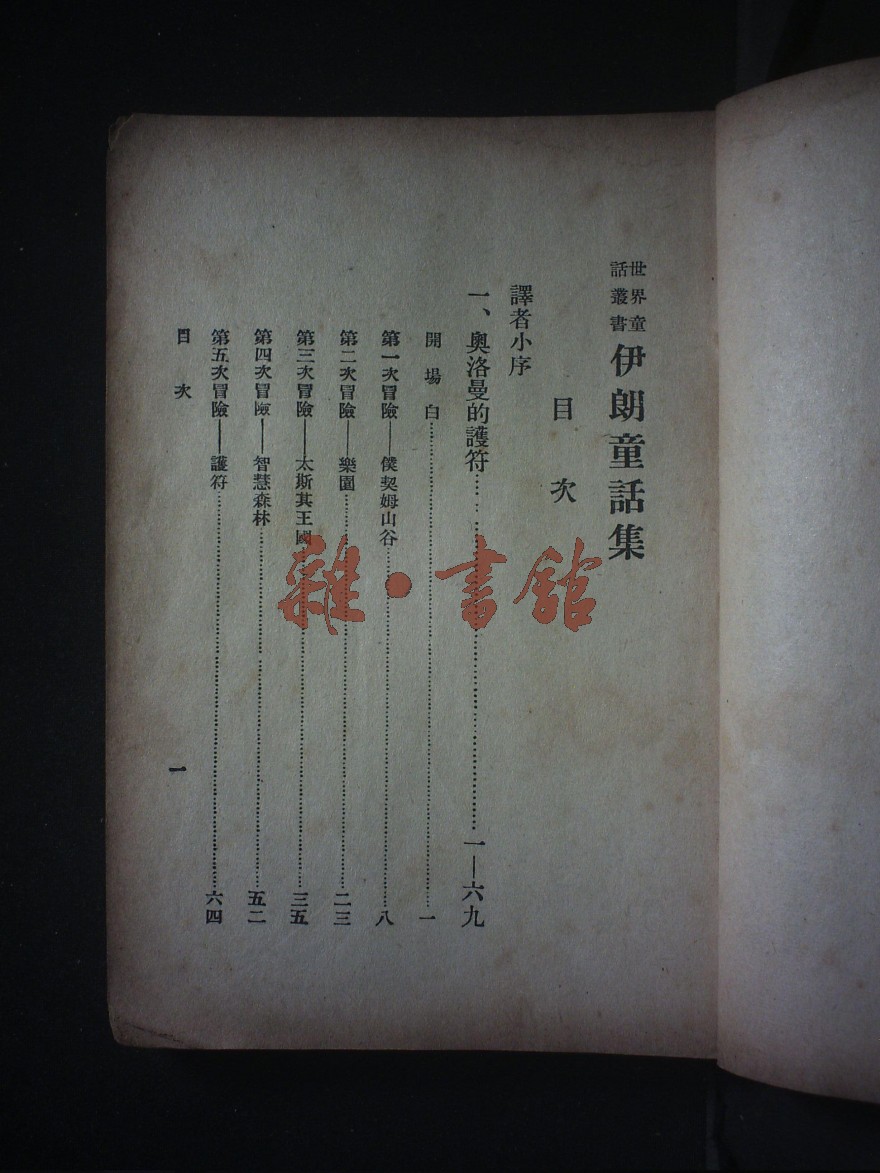 世界童話叢書 伊朗童話集
目次
譯者小序
一、奧洛曼的護符……一—六九
開場白……一
第一次冒險——僕契姆山谷……八
第二次冒險——樂園……二三
第三次冒險——太斯其王國……三五
第四次冒險——智慧森林……五二
第五次冒險——護符……六四
目次 一
雜·書館